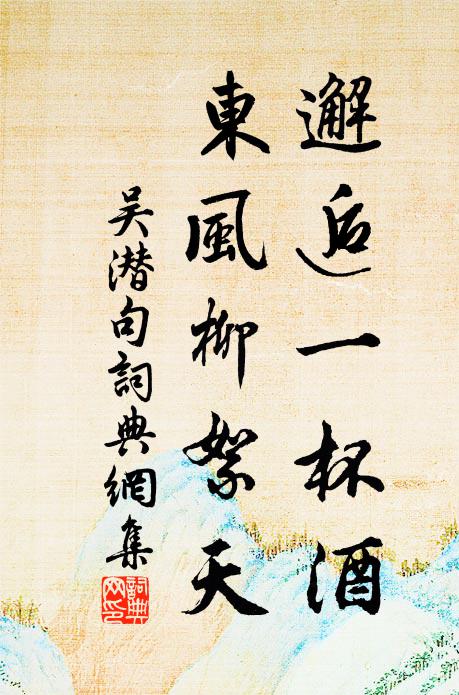 邂逅一杯酒
東風柳絮天
吴潜句詞典網集
詞典